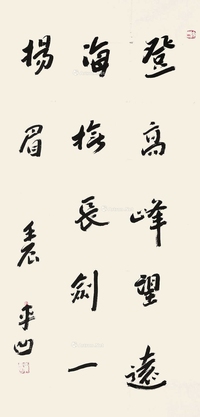 登高峰望遠
海撫長劍一
揚眉
壬辰 平凹